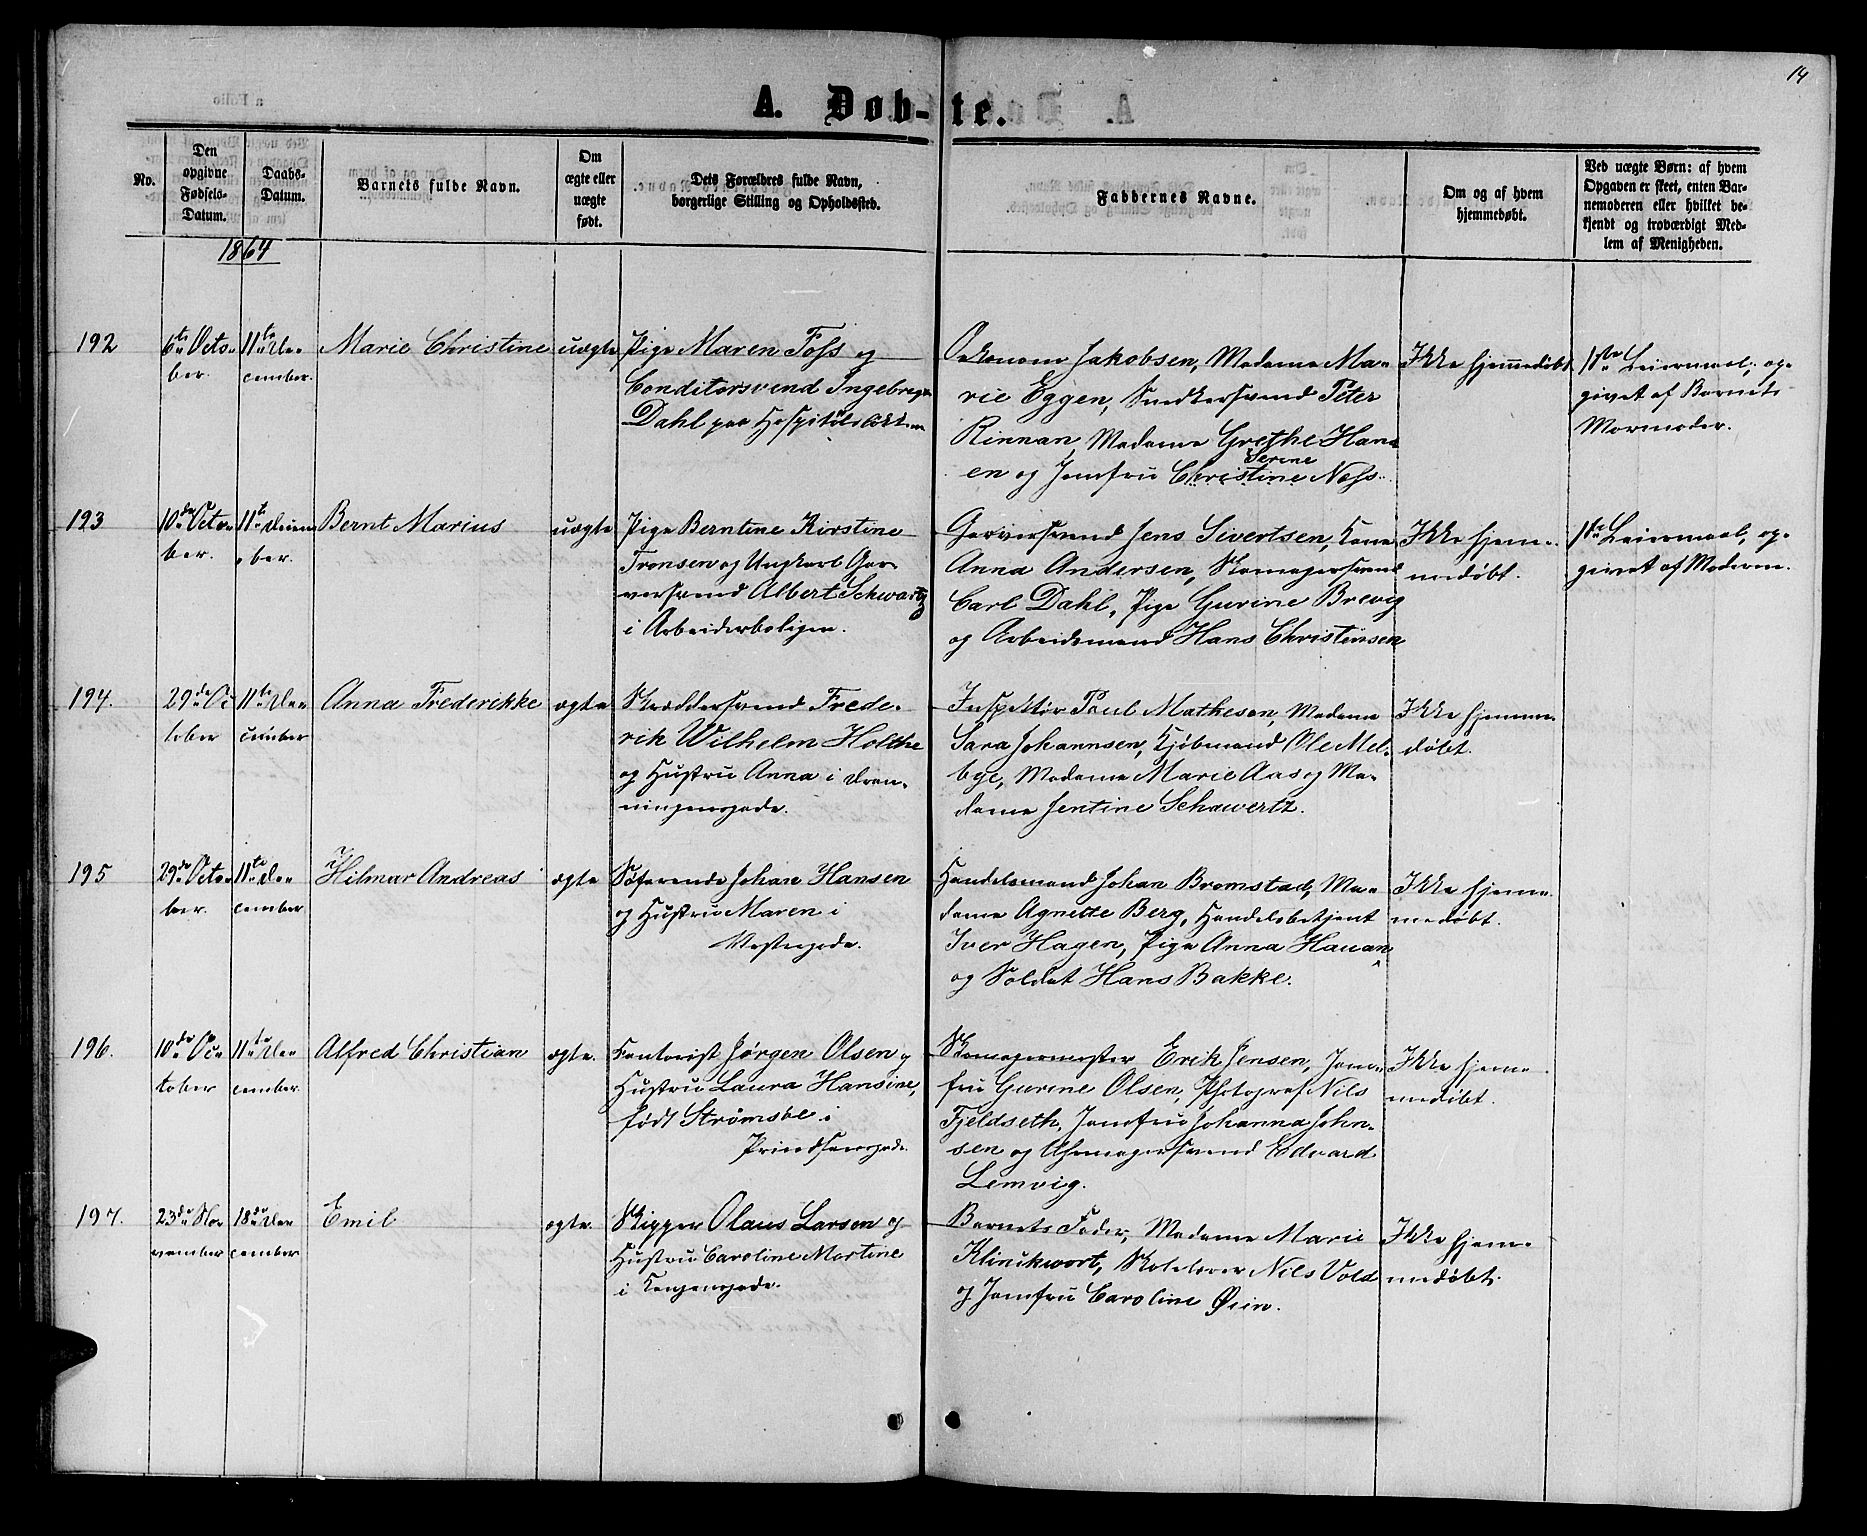 14
A. Døb-te.
No.
Den
opgivne
Fødsels-
Datum.
Daabs-
Datum.
Barnets fulde Navn.
Om
ægte eller
uægte
født.
Dets Forældres fulde Navn,
borgerlige Stilling og Opholdssted.
Faddernes Navne.
Om og af hvem
hjemmedøbt.
Ved uægte Børn: af hvem
Opgaven er skeet, enten Bar-
nemoderen eller hvilket be-
kjendt og troværdigt Med-
lem af Menigheden.
1864
192
6te Octo-
ber.
11te De-
cember.
Marie Christine
uægte
Pige Maren Foss og
Conditorsvend Ingebregt
Dahl paa Hospitalsløkken
Oekonom Jakobsen, Madame Ma-
rie Eggen, Snedkersvend Peter
Rinnan, Madame Grethe Han-
Serine
en og Jomfru Christine Næss.
Ikke hjemmedøbt
1ste Leiermaal, op-
givet af Barnets
Mormoder.
193
10de Octo-
ber.
11te Decem-
ber.
Bernt Marius
uægte
Pige Berntine Kirstine
Tronsen og Ungkarl Gar-
versvend Albert Schwartz
i Arbeiderboligen.
Garversvend Jens Sivertsen, Kone
Anna Andersen, Skomagersvend
Carl Dahl, Pige Gurine Brevig
og Arbeidsmand Hans Christensen
Ikke hjem-
medøbt.
1ste Leiermaal, op-
givet af Moderen.
194.
29de Oc
tober
11te De-
cember
Anna Frederikke
ægte
Skræddersvend Frede-
rik Wilhelm Holthe
og Hustru Anna i Dron-
ningensgade.
Inspektør Paul Mathesen, Madame
Sara Johannsen, Kjøbmand Ole Mel-
bye, Madame Marie Aas og Ma-
dame Jentine Schawertz.
Ikke hjemme-
døbt.
195
29de Octo-
ber.
11te De-
cember
Hilmar Andreas
ægte
Søfarende Johan Hansen
og Hustru Maren i
Vestregade.
Handelsmand Johan Bromstad, Ma-
dame Agnette Berg, Handelsbetjent
Iver Hagen, Pige Anna Hauan
og Soldat Hans Bakke.
Ikke hjem-
medøbt.
196.
10de Oc-
tober
11te De-
cember
Alfred Christian
ægte.
Kontorist Jørgen Olsen og
Hustru Laura Hansine,
født Strømsøe i
Prindsensgade.
Skomagermester Erik Jensen, Jom-
fru Gurine Olsen, Photograf Nils
Fjeldseth, Jomfru Johanna John-
sen og Uhrmagersvend Edvard
Lemvig.
Ikke hjem-
medøbt.
197.
23de No-
vember
18de De-
cember
Emil
ægte.
Skipper Olaus Larsen og
Hustru Caroline Martine
i Kongensgade.
Barnets Fader, Madame Marie
Klinikwort, Skolelærer Nils Vold
og Jomfru Caroline Øien.
Ikke hjem-
medøbt.